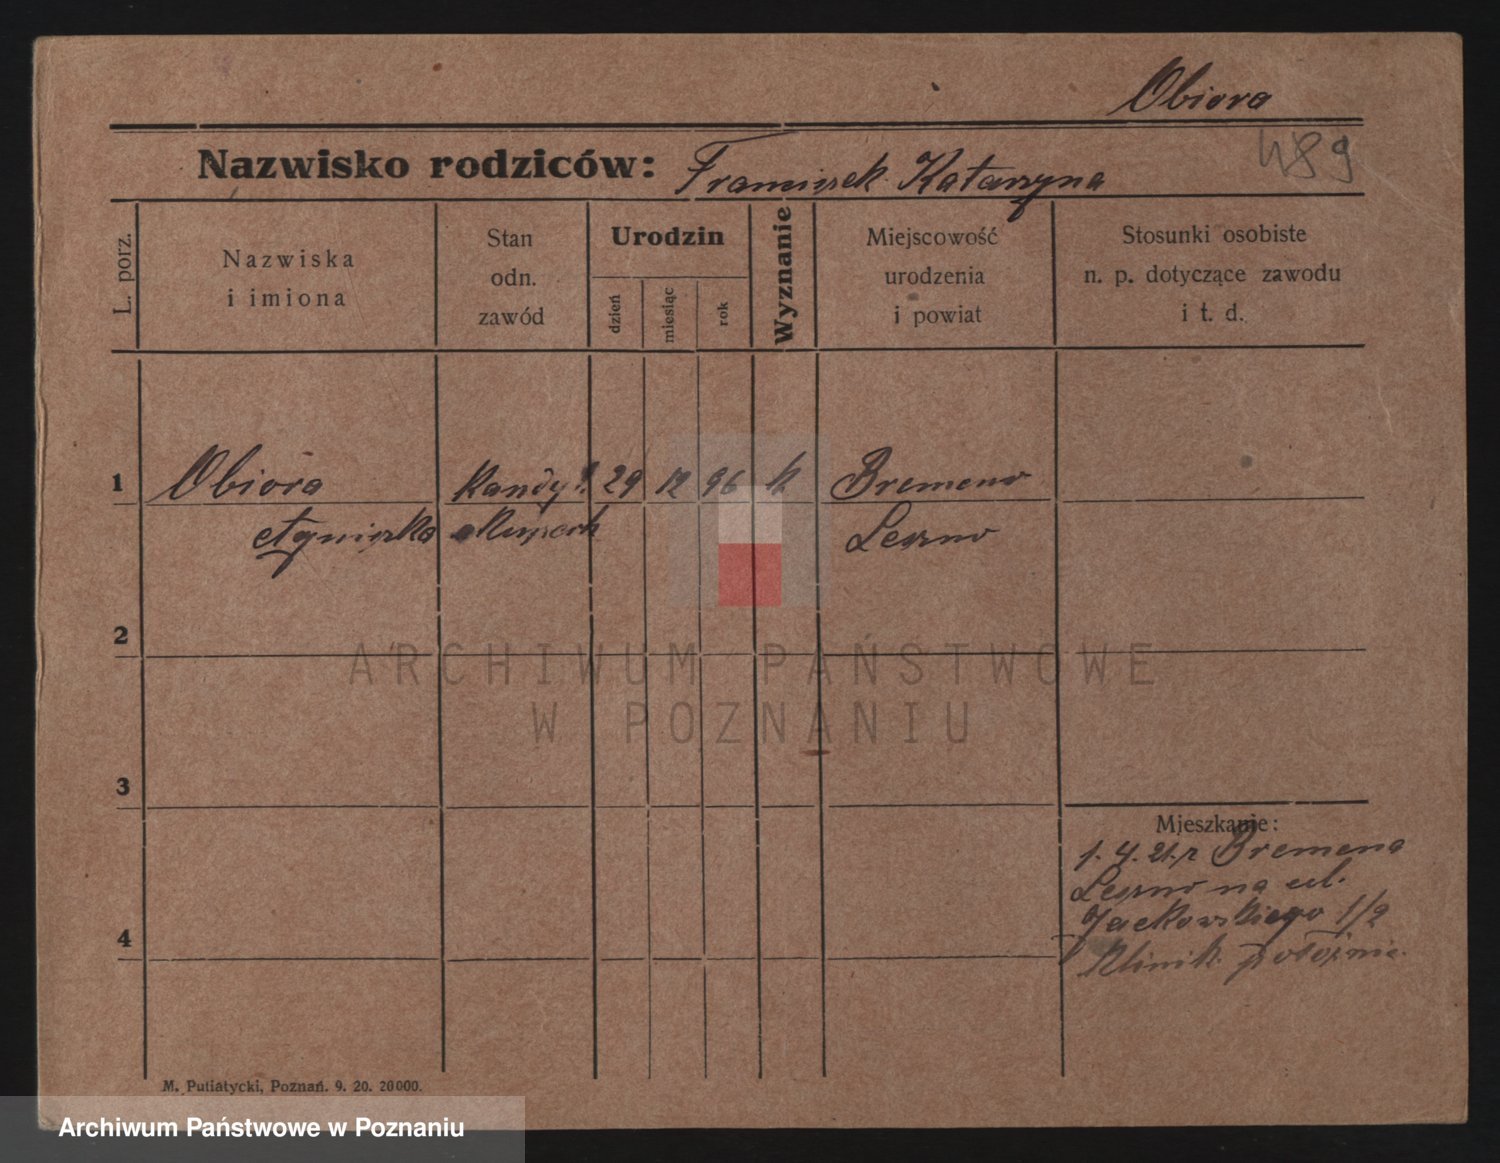 Obiora
489
Nazwisko rodziców: Franciszek Katarzyna
L. porz.
Nazwiska
i imiona
Stan
odn.
zawód
Urodzin
dzień
miesiąc
rok
Wyznanie
Miejscowość
urodzenia
i powiat
Stosunki osobiste
n. p. dotyczące zawodu
i t. d.
1
Obiora
29 12 96 k
Bremeno
Agnieszka
Leszno
2
ARCHIWUM PAŃSTWOWE
W POZNANIU
3
Mieszkanie:
1. 4. 21. z Bremena
Leszno na ul.
Jackowskiego 1/2
4
Klinik. położnic.
M. Putiatycki, Poznań. 9. 20. 20000.
Archiwum Państwowe w Poznaniu